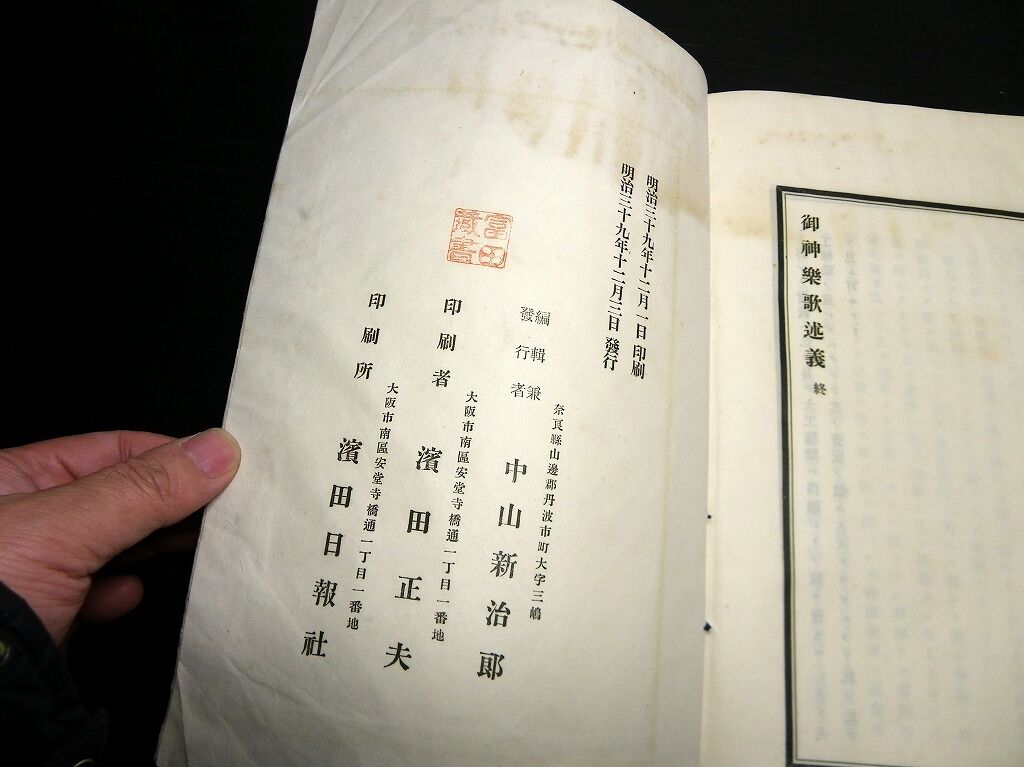 御神樂歌述義 終
明治三十九年十二月一日 印刷
明治三十九年十二月三日 發行
奈良縣山邊郡丹波市町大字三嶋
編輯兼
發行者
中山新治郎
大阪市南區安堂寺橋通一丁目一番地
印刷者
濱田正夫
大阪市南區安堂寺橋通一丁目一番地
印刷所
濱田日報社
富田
藏書